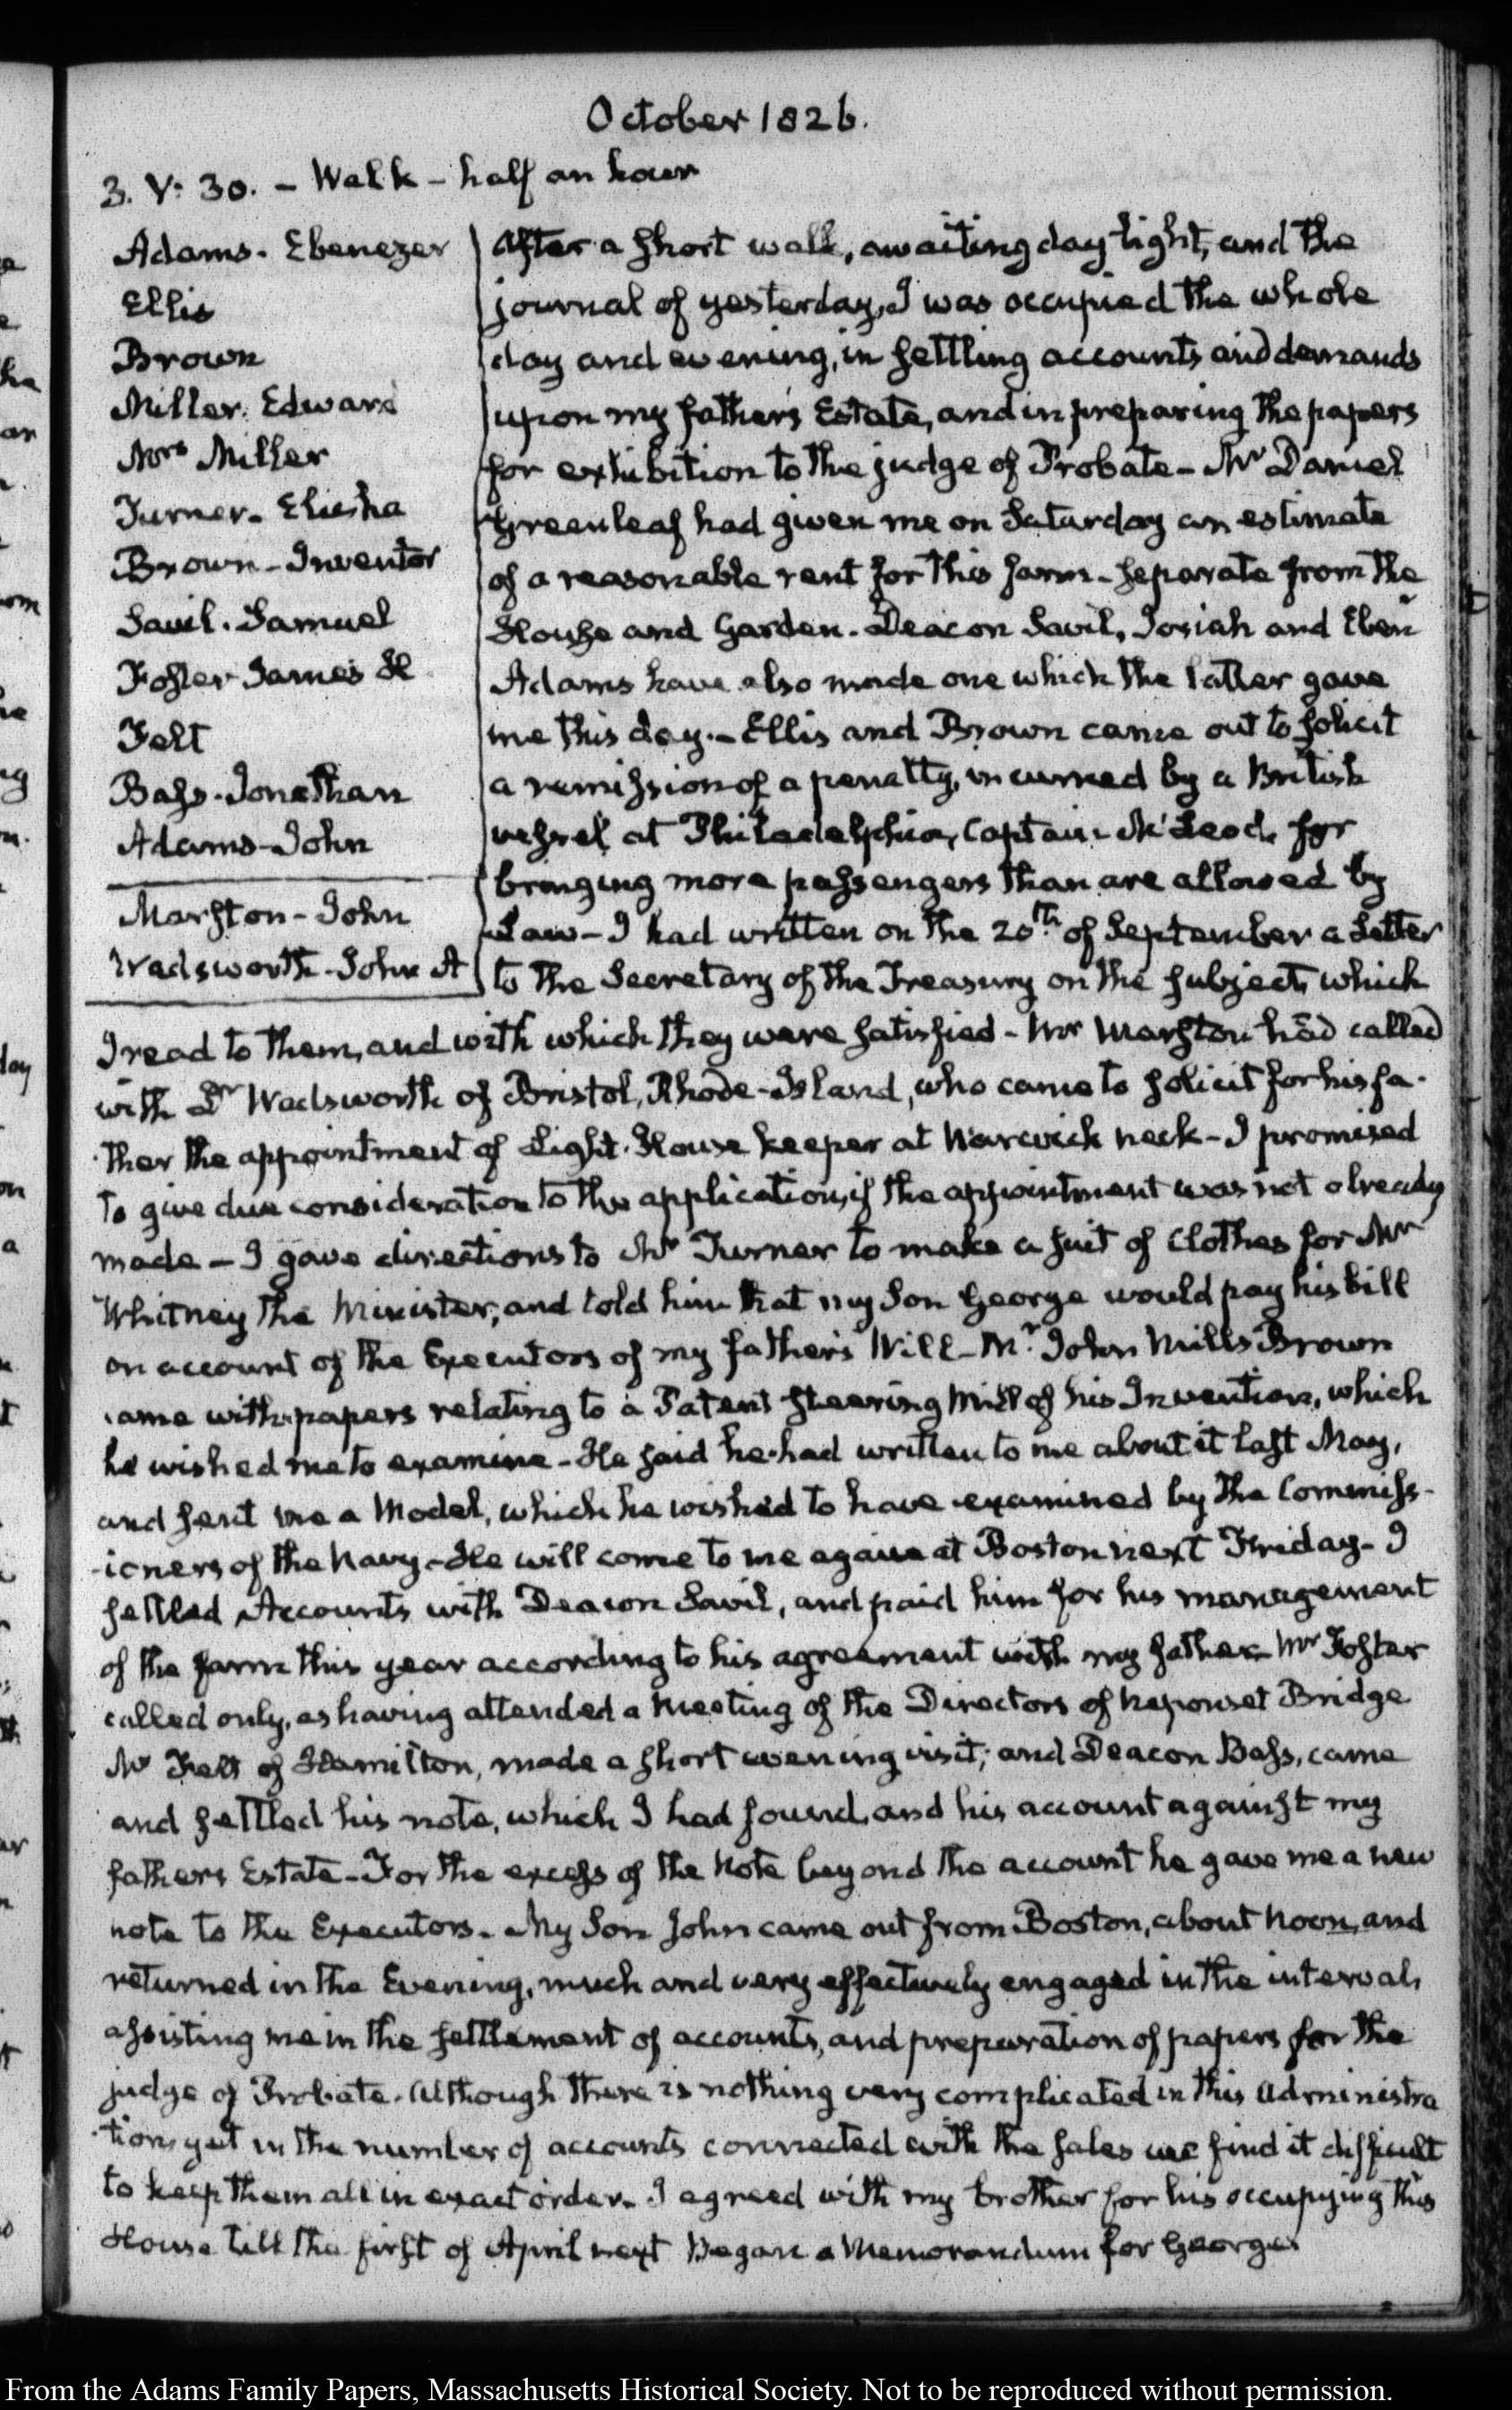 October 1826.
3. V: 30. – Walk – half an hour
Adams. Ebenezer
Ellis
Brown
Miller. Edward
Mrs Miller
Turner. Elisha
Brown – Inventor
Savil. Samuel
Foster James H
Felt
Bass. Jonathan
Adams – John
Marston – John
Wadsworth. John A
After a short walk, awaiting day light, and the
journal of yesterday, I was occupied the whole
day and evening, in settling accounts and demands
upon my father's Estate, and in preparing the papers
for exhibition to the judge of Probate – Mr Daniel
Greenleaf had given me on Saturday an estimate
of a reasonable rent for this farm – separate from the
House and Garden. Deacon Savil, Josiah and Eben
Adams have also made one which the latter gave
me this day. – Ellis and Brown came out to solicit
a remission of a penalty, incurred by a British
vessel at Philadelphia, Captain McLeod, for
bringing more passengers than are allowed by
Law – I had written on the 20th. of September a Letter
to the Secretary of the Treasury on the subject, which
I read to them, and with which they were satisfied – Mr Marston had called
with Dr Wadsworth of Bristol, Rhode-Island, who came to solicit for his fa-
ther the appointment of Light-House keeper at Warwick neck – I promised
to give due consideration to the application, if the appointment was not already
made – I gave directions to Mr Turner to make a suit of Clothes for Mr
Whitney the Minister, and told him that my Son George would pay his bill
on account of the Executors of my father's Will – Mr. John Mills Brown
came with papers relating to a Patent steering Mill of his Invention, which
he wished me to examine – He said he had written to me about it last May,
and sent me a Model, which he wished to have examined by the Commiss-
-ioners of the Navy – He will come to me again at Boston next Friday – I
settled Accounts with Deacon Savil, and paid him for his management
of the farm this year according to his agreement with my father – Mr Foster
called only, as having attended a Meeting of the Directors of Neponset Bridge
Mr Felt of Hamilton, made a short evening visit; and Deacon Bass, came
and settled his note, which I had found, and his account against my
fathers Estate – For the excess of the Note beyond the account he gave me a new
note to the Executors. My Son John came out from Boston, about Noon, and
returned in the Evening, much and very effectively engaged in the interval,
assisting me in the settlement of accounts, and preparation of papers for the
judge of Probate. Although there is nothing very complicated in this Administra
-tion, yet in the number of accounts connected with the sales we find it difficult
to keep them all in exact order. I agreed with my brother for his occupying this
House till the first of April next Began a Memorandum for George.
From the Adams Family Papers, Massachusetts Historical Society. Not to be reproduced without permission.